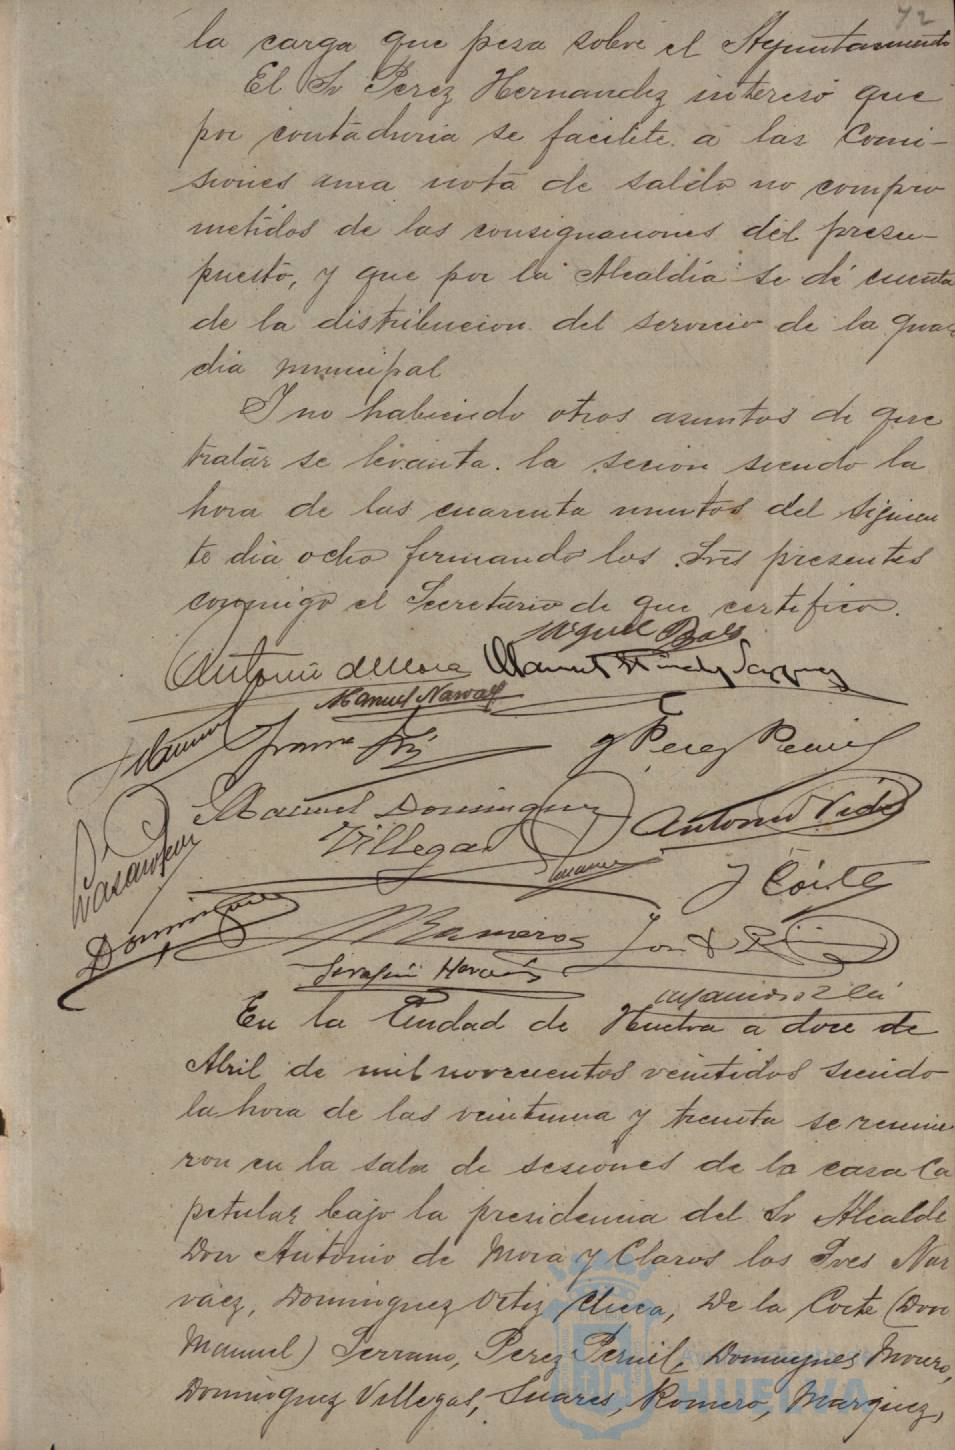 72
la carga que pesa sobre el Ayuntamiento
El Sr Perez Hernandez interesó que
por contaduria se facilite a las Comi-
siones una nota de saldo no compro
metidos de las consignaciones del presu-
puesto, y que por la Alcaldia se dé cuenta
de la distribucion del servicio de la guar
dia municipal
Y no habiendo otros asuntos de que
tratar se levanta la secion siendo la
hora de las cuarenta minutos del siguien
te dia ocho firmando los Sres presentes
conmigo el Secretario de que certifico.
Antonio de Mora
Manuel Narvaez
Perez Pernil
Manuel Dominguez
Villegas
Antonio Vides
J Corte
Dominguez
M Romero
Serafin
En la Ciudad de Huelva a doce de
Abril de mil novecientos veintidos siendo
la hora de las veintiuna y treinta se reunie
ron en la sala de sesiones de la casa Ca
petular bajo la presidencia del Sr Alcalde
Don Antonio de Mora y Claros los Sres Nar
vaez, Dominguez Ortiz Checa, De la Corte (Don
Manuel) Serrano, Perez Pernil, Domingues Mouro,
Dominguez Villegas, Suares, Romero, Marquez,
Ayuntamiento de
HUELVA